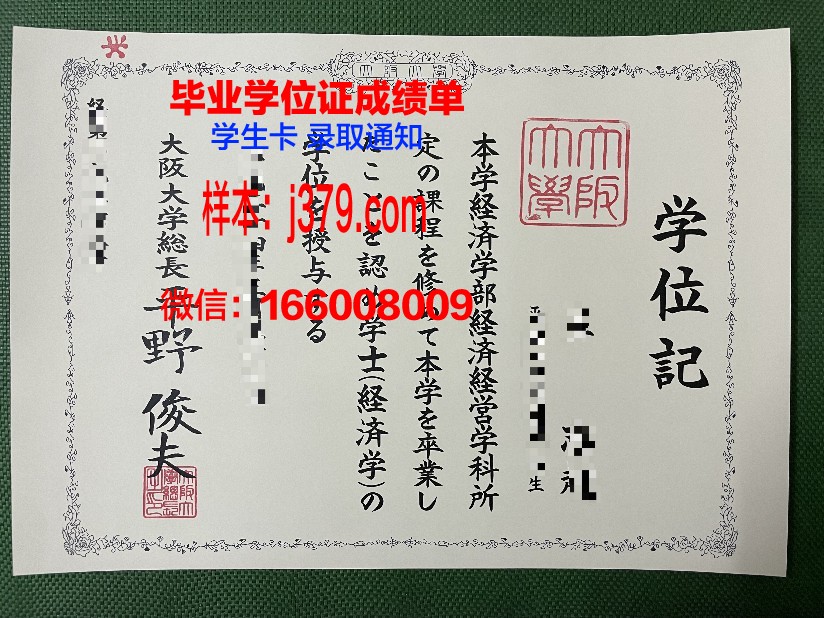 毕业学位证成绩单
学生卡 录取通知
样本: j379.com
微信: 166008009
学位記
大阪
大學
生
本学経済学部経済経営学科所
定の課程を修めて本学を卒業し
たことを認め学士(経済学)の
学位を授与する
大阪大学総長
平野俊夫